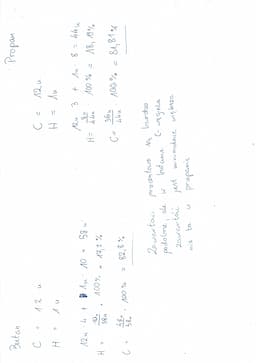 Butan
C = 12 u
H = 1u
12u · 4 + 1u · 10 = 58u
H = 10u/58u · 100% = 17,2%
C = 48u/58u · 100% = 82,8%
Propan
C = 12u
H = 1u
12u · 3 + 1u · 8 = 44u
H = 8u/44u · 100% = 18,19%
C = 36u/44u · 100% = 81,81%
Zawartości procentowe są bardzo
podobne, ale w butanie C-węgla
zawartość jest minimalnie większa
niż ta w propanie